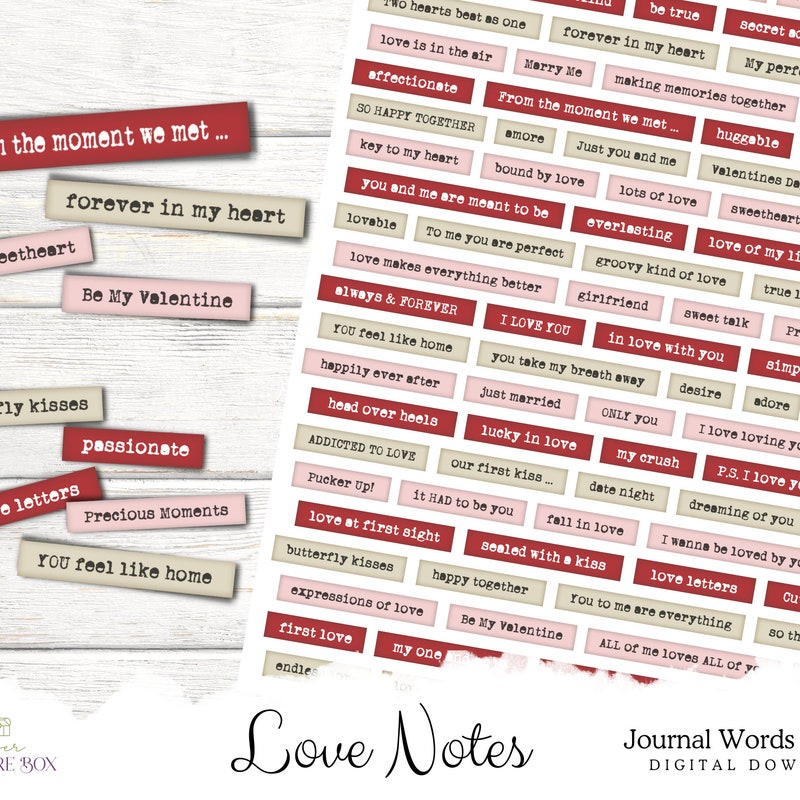 the moment we met ...
forever in my heart
Be My Valentine
kisses
passionate
letters
Precious Moments
YOU feel like home
Two hearts beat as one
be true
secret
love is in the air
forever in my heart
My
affectionate
Marry Me
making memories together
SO HAPPY TOGETHER
From the moment we met ...
huggable
key to my heart
amore
Just you and me
Valentines
you and me are meant to be
bound by love
lots of love
sweetheart
lovable
To me you are perfect
everlasting
love of my
love makes everything better
groovy kind of love
true
always & FOREVER
girlfriend
sweet talk
YOU feel like home
I LOVE YOU
in love with you
happily ever after
you take my breath away
desire
adore
head over heels
just married
ONLY you
I love loving
ADDICTED TO LOVE
lucky in love
my crush
P.S. I love
Pucker Up!
our first kiss ...
date night
dreaming of you
love at first sight
it HAD to be you
fall in love
I wanna be loved by
butterfly kisses
sealed with a kiss
love letters
expressions of love
happy together
You to me are everything
so
first love
Be My Valentine
ALL of me loves ALL of
my one
Love Notes
Journal Words
DIGITAL
BOX